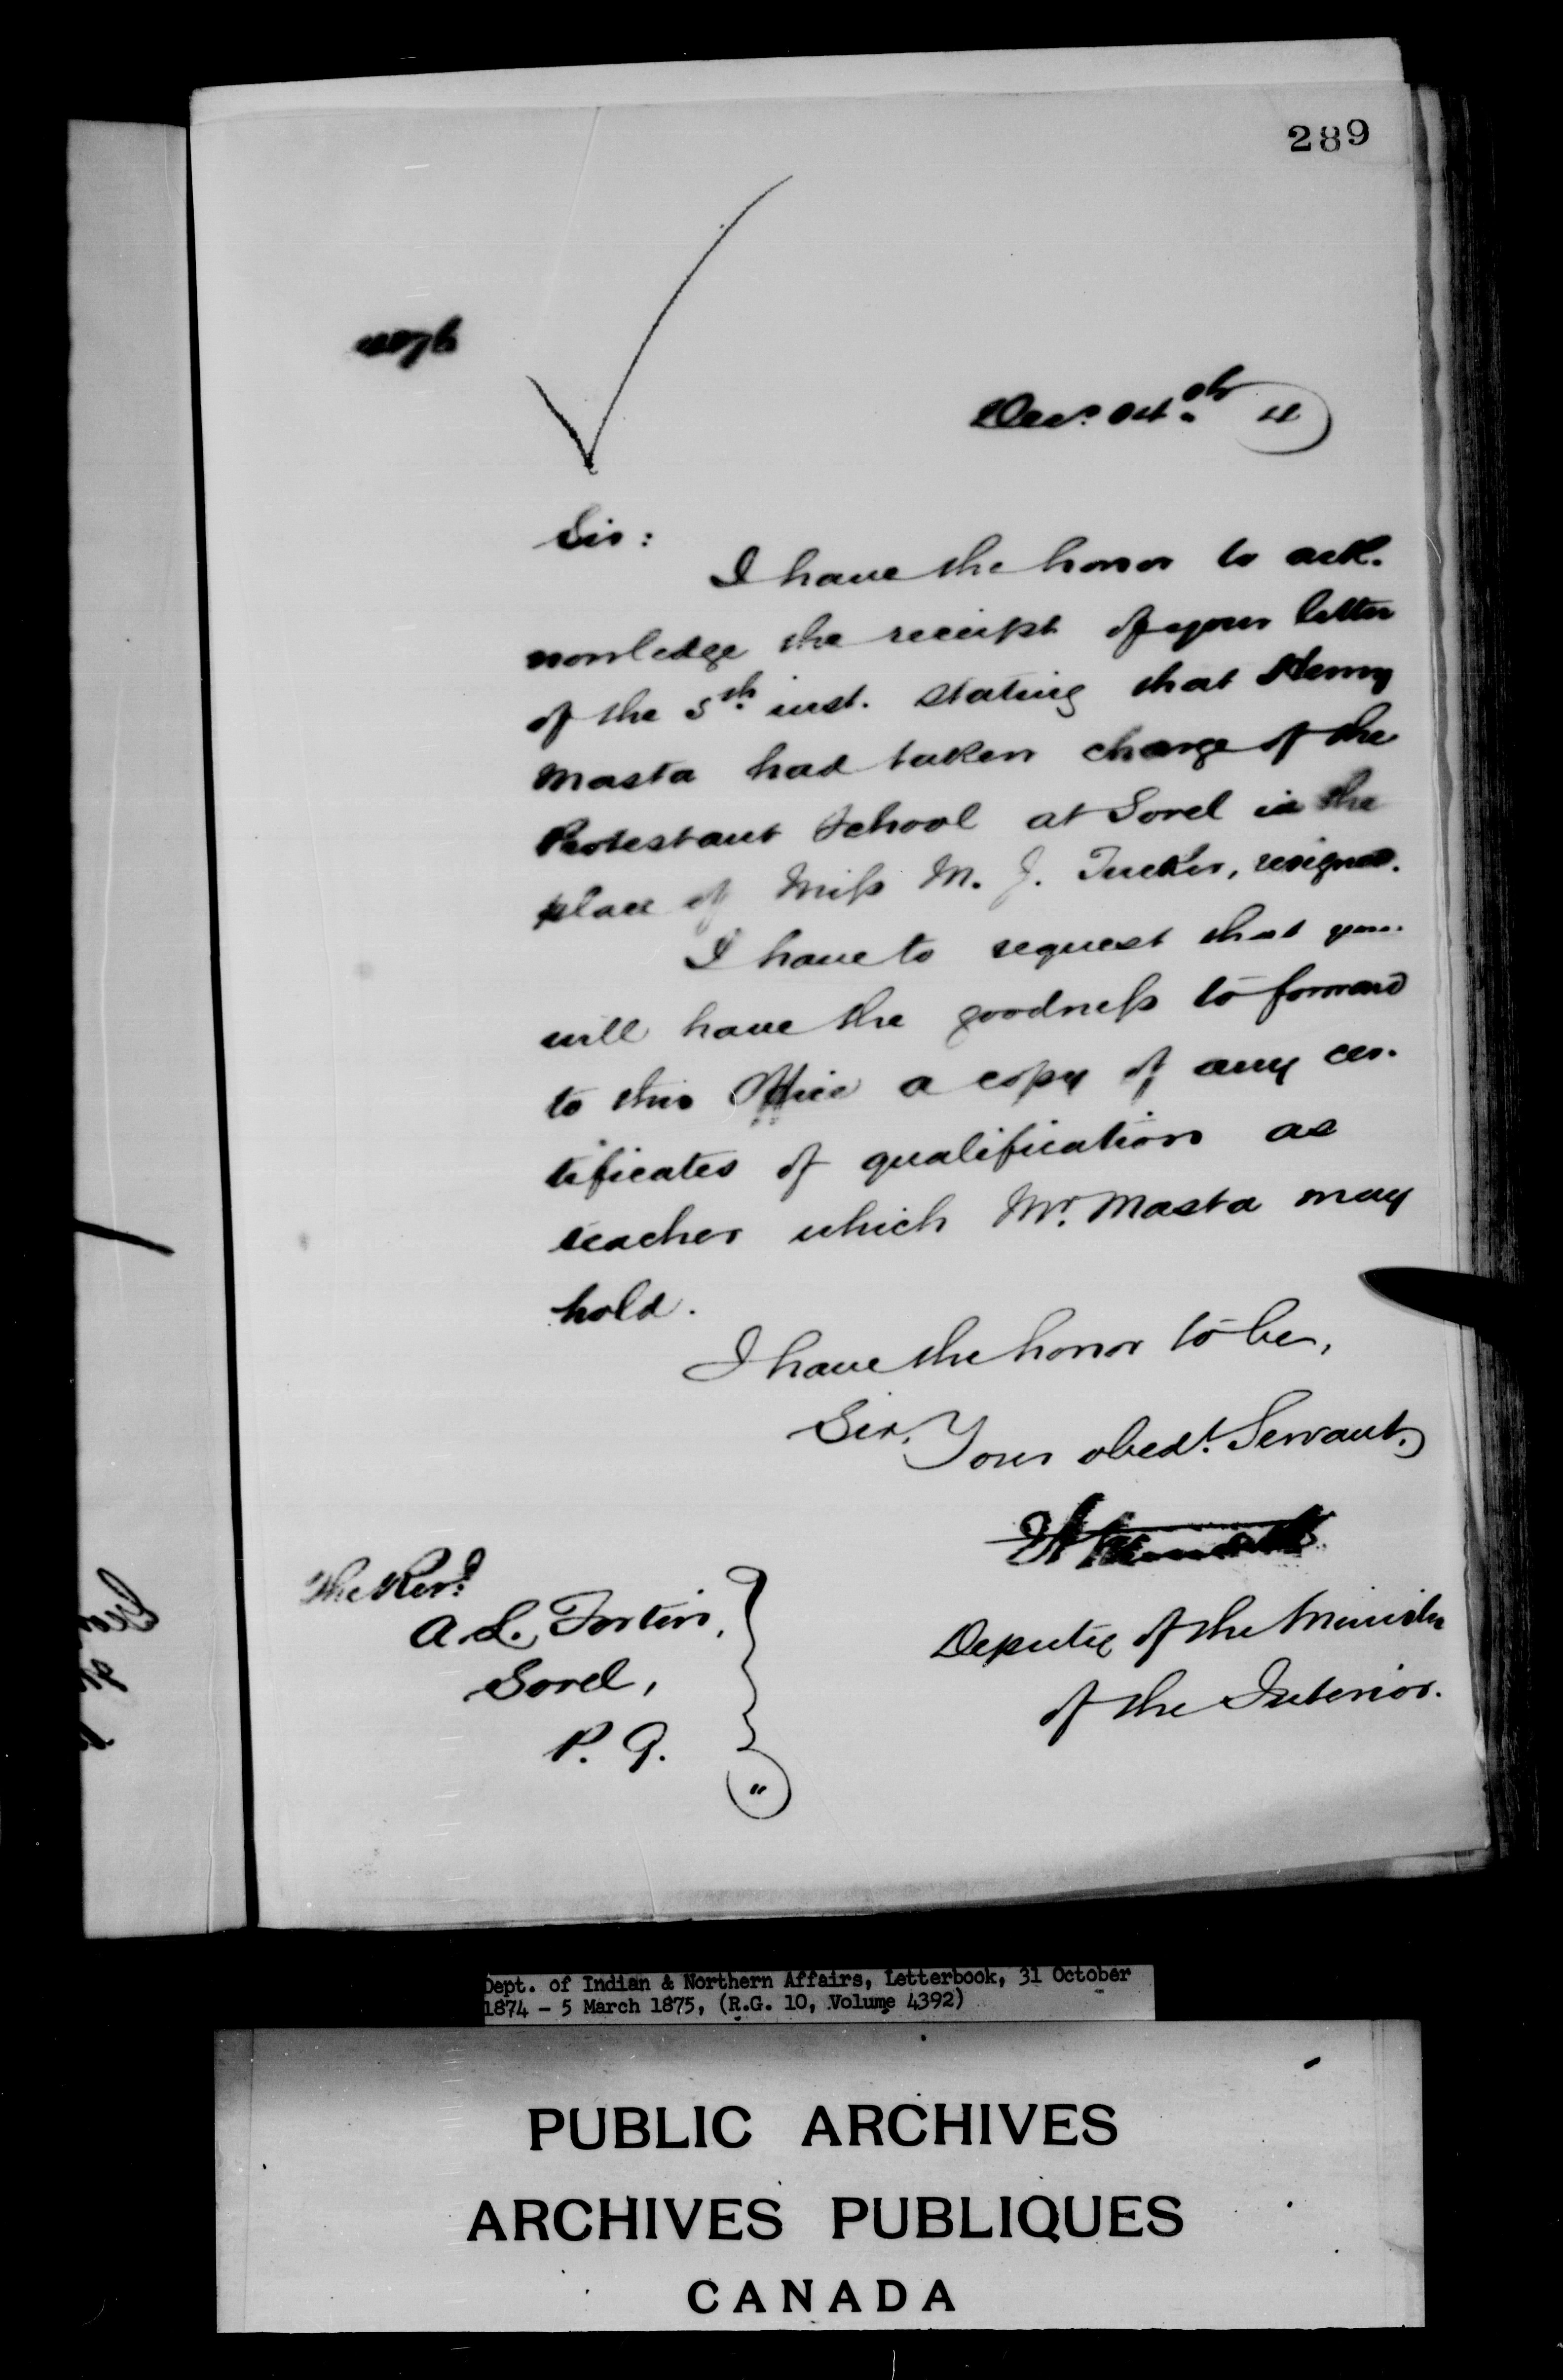 289
Sir:
I have the honor to ack-
nowledge the receipt of your letter
of the 5th inst. stating that Henry
Masta had taken charge of the
Protestant School at Sorel in the
place of Miss M. J. Tucker, resigned.
I have to request that you
will have the goodness to forward
to this Office a copy of any cer-
tificates of qualification as
teacher which Mr. Masta may
hold.
I have the honor to be,
Sir, Your obedt. Servant,
Deputy of the Minister
of the Interior.
The Revd.
A. L. Fortin,
Sorel,
P. Q.
Dept. of Indian & Northern Affairs, Letterbook, 31 October
1874 - 5 March 1875, (R.G. 10, Volume 4392)
PUBLIC ARCHIVES
ARCHIVES PUBLIQUES
CANADA